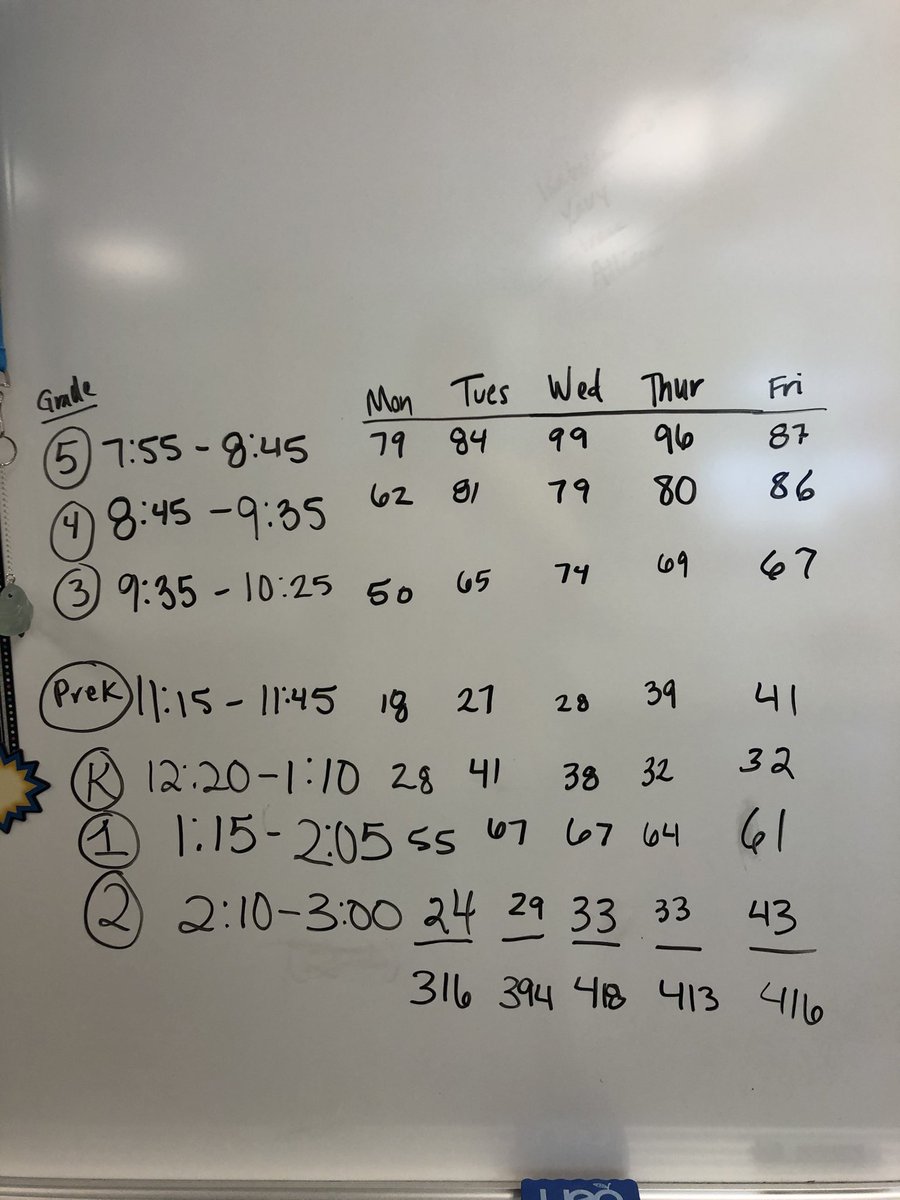 Grade Mon Tues Wed Thur Fri
5 7:55 - 8:45 79 84 99 96 87
4 8:45 - 9:35 62 81 79 80 86
3 9:35 - 10:25 50 65 74 69 67
PreK 11:15 - 11:45 18 27 28 39 41
K 12:20 - 1:10 28 41 38 32 32
1 1:15 - 2:05 55 67 67 64 61
2 2:10 - 3:00 24 29 33 33 43
316 394 418 413 416